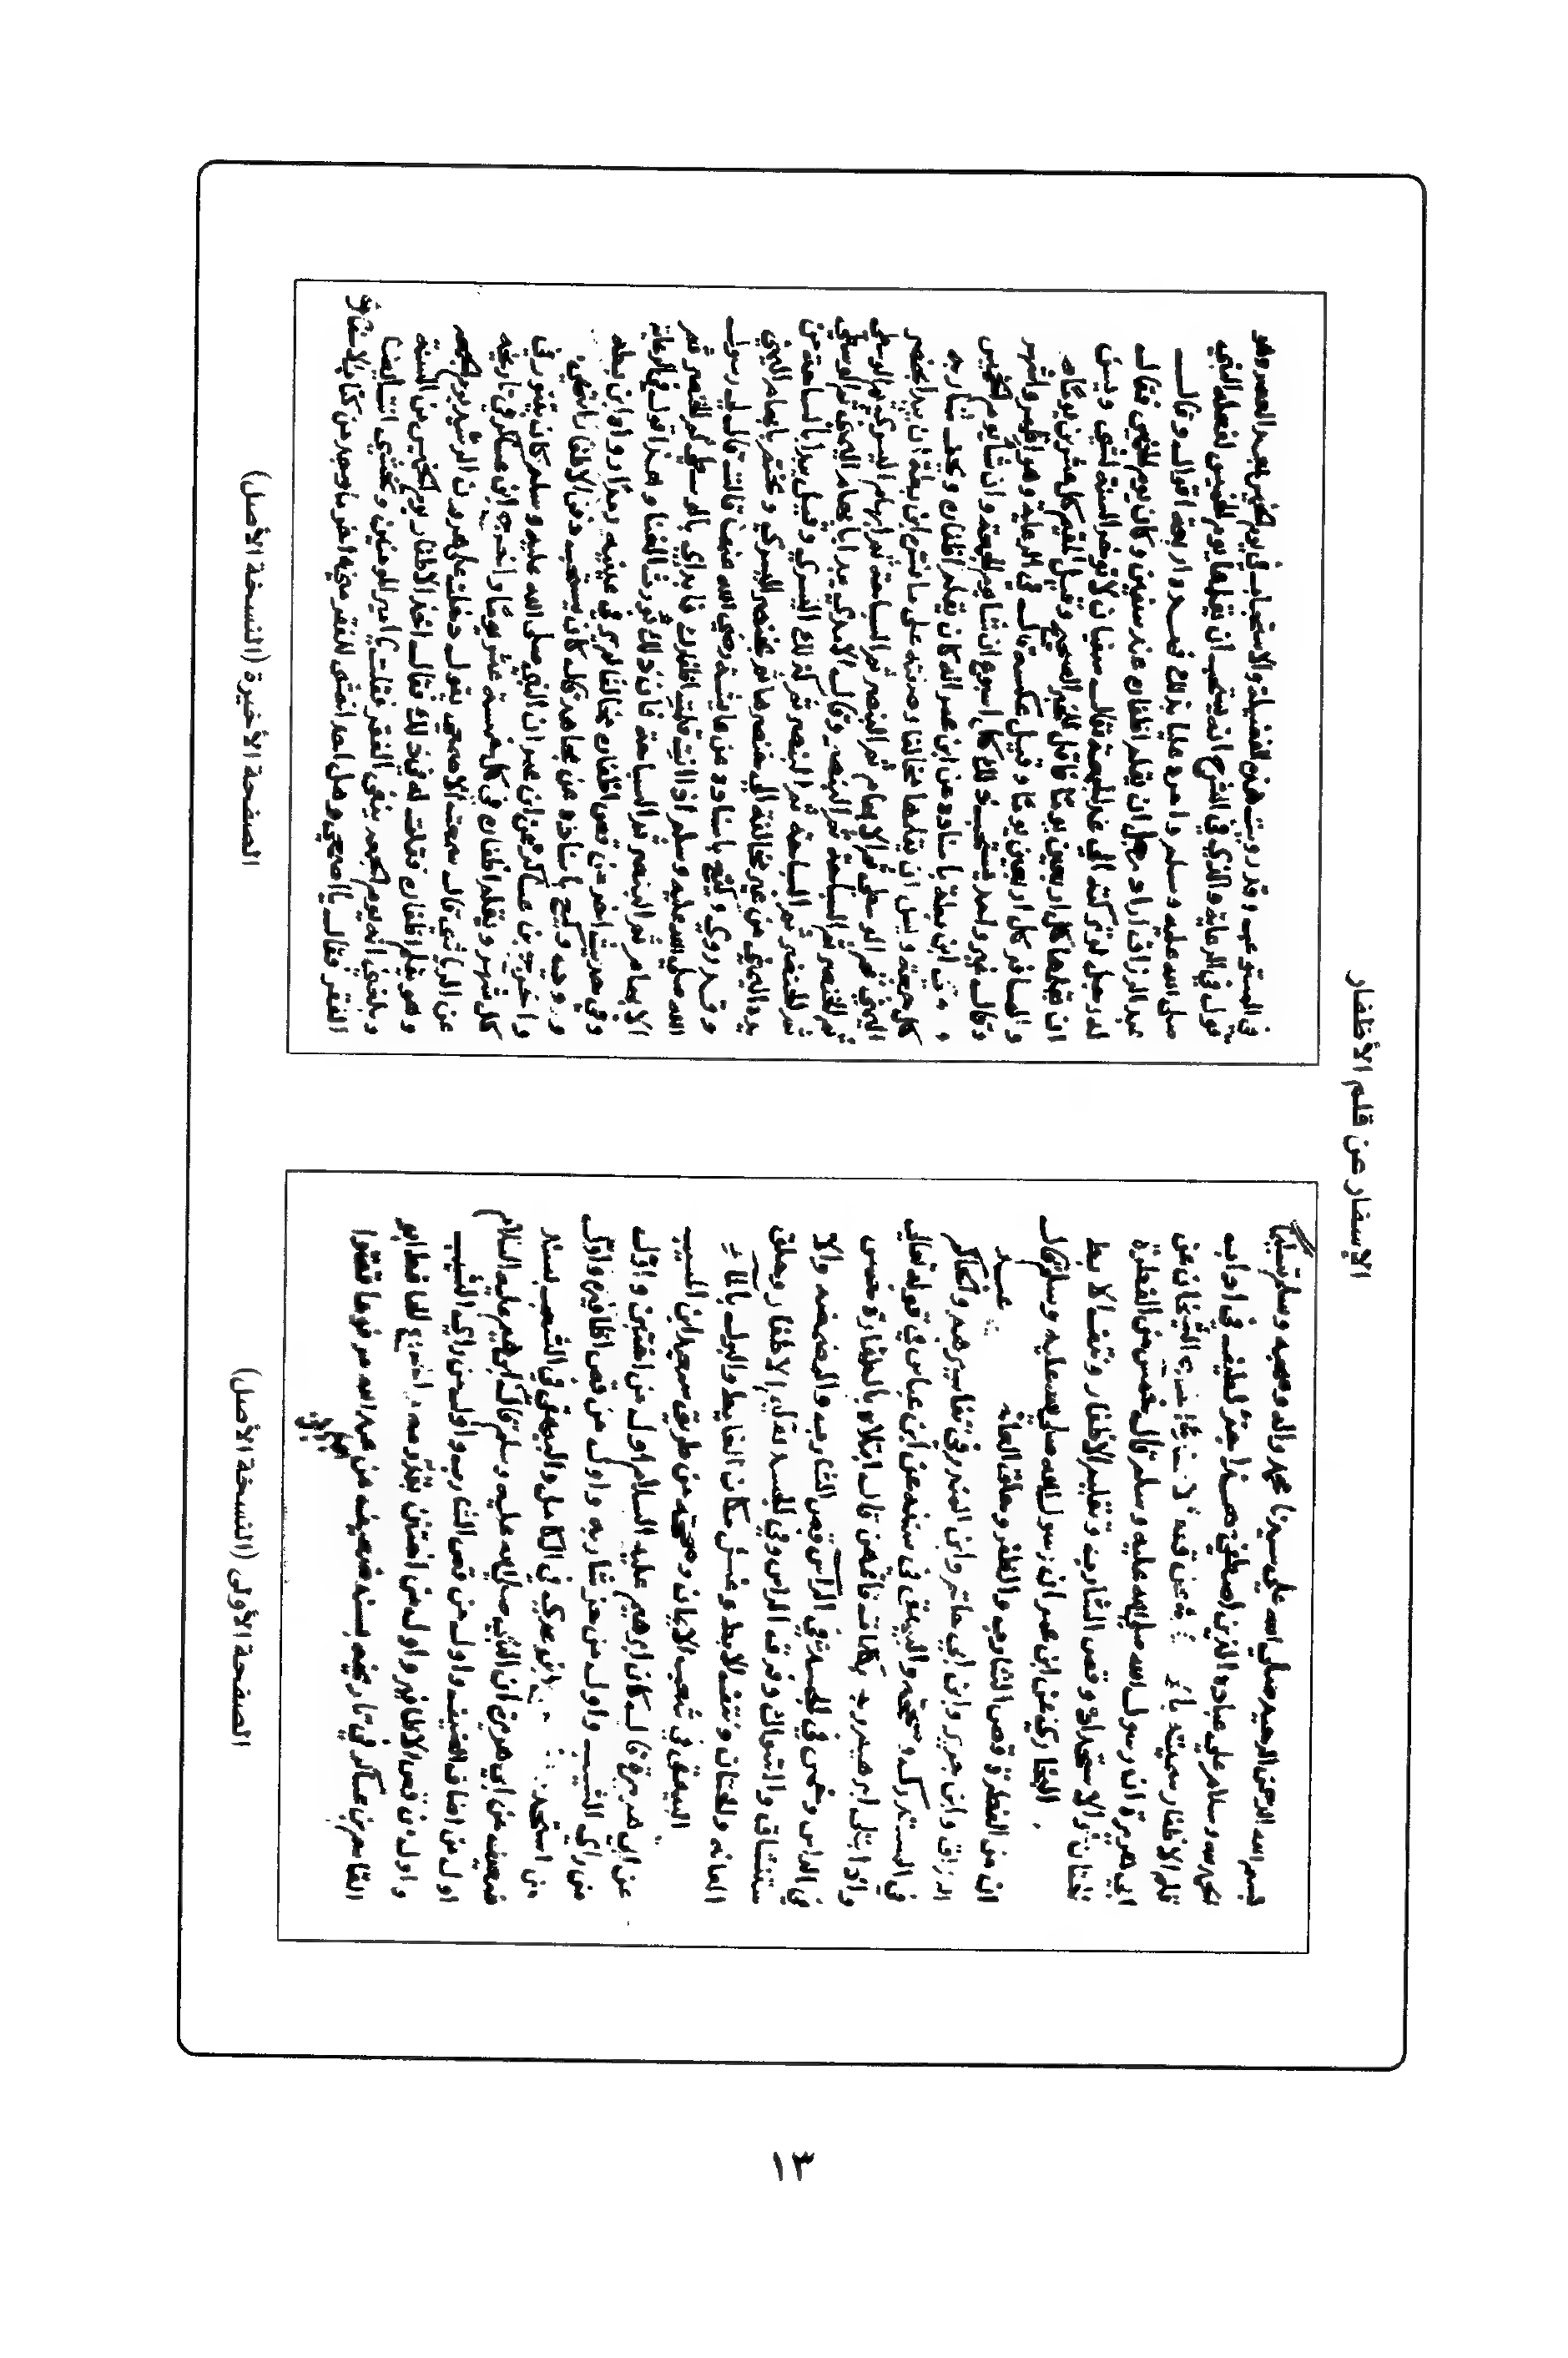 الإسفار عن قلم الأظفار
بسم الله الرحمن الرحيم صلى الله على سيدنا محمد واله وصحبه وسلم تسليما
الحمد لله وسلام على عباده الذين اصطفى هذا جزء لطيف في اداب
قلم الاظفار سميته الشيخان عن
ابي هريرة ان رسول الله صلى الله عليه وسلم قال خمس من الفطرة
الختان والاستحداد وقص الشارب وتقليم الاظفار ونتف الابط
البخاري عن ابن عمر ان رسول الله صلى الله عليه وسلم قال
ان من الفطرة قص الشارب والظفر وحلق العانه عبد
الرزاق وابن جرير وابن ابي حاتم وابن المنذر في تفاسيرهم والحاكم
في المستدرك وصححه والبيهقي في سننه عن ابن عباس في قوله تعالى
واذ ابتلى ابرهيم ربه بكلمات فاتمهن قال ابتلاه بالطهارة خمس
في الراس وخمس في الجسد في الراس قص الشارب والمضمضه والا
ستنشاق والسواك وفرق الراس وفي الجسد تقليم الاظفار وحلق
العانه والختان ونتف الابط وغسل مكان الغايط والبول بالماء
البيهقي في شعب الايمان وصححه من طريق سعيد ابن المسيب
عن ابي هريرة قال كان ابرهيم عليه السلام اول من اختتن واول
من راى الشيب واول من جز شاربه واول من قص اظافيره واول
من استحد ابن عدي في الكامل والبيهقي في الشعب بسند
ضعيف عن ابي هريرة ان النبي صلى الله عليه وسلم قال كان ابرهيم عليه السلام
اول من اضاف الضيف واول من قص الشارب واول من راى الشيب
واول من قص الاظافير واول من اختتن بقدومه الحافظ ابو
القاسم بن عساكر في تاريخه بسند ضعيف عن عبد الله مرفوعا قصوا
الصفحة الأولى (النسخة الأصل)
قول في الرعاية والذي في الشرح انه يستحب ان يقلمها يوم الخميس لفعله النبي
صلى الله عليه وسلم وامره عليا بذلك اربعة اقوال وقال
عبد الرزاق اراد رجل ان يقلم اظفاره عند سفيان وكان يوم الخميس فقال
له رجل لو تركته الى غد الجمعة فقال سفيان لا توخر السنة لشي
والمسافر كل اربعين يوما وقيل عكسه قال في الرعاية وهو اظهر واشهر
كل جمعة ويسن ان يقلمها مخالفا وصفته على ما فسره ابن بطة ان يبدا بخنصر
اليمنى ثم الوسطى ثم الابهام ثم البنصر ثم السباحة ثم ابهام اليسرى ثم الوسطى
ثم الخنصر ثم السباحة ثم البنصر وقال الامدي يبدا بابهام اليمنى ثم الوسطى
ثم الخنصر ثم السباحة ثم البنصر ثم كذلك اليسرى وقيل يبدا بالسباحة من
يده اليمنى من غير مخالفة الى خنصرها ثم بخنصر اليسرى ويختم بابهام اليمنى
وقد روى وكيع باسناده عن عايشة رضي الله عنها قالت قال لي رسول
الله صلى الله عليه وسلم اذا انت قلمت اظفارك فابداي بالوسطى ثم الخنصر ثم
الابهام ثم البنصر ثم السباحة فان ذلك يورث الغنا وهذا قول في الرعاية
وفي حديث اخر من قص اظفاره مخالفا لم ير في عينيه رمدا رواه ابن بطة
وروى وكيع باسناده عن مجاهد قال كان يستحب دفن الاظفار انتهى
واخرج بن عساكر عن ابن عمر ان النبي صلى الله عليه وسلم كان يتنور في
كل شهر ويقلم اظفاره في كل خمسة عشر يوما واخرج ابن عساكر في تاريخه
عن الرياشي قال سمعت الاصمعي يقول دخلت على هرون الرشيد يوم الجمعه
وهو يقلم اظفاره فقلت له في ذلك فقال اخذ الاظفار يوم الخميس من السنة
وبلغني انه يوم الجمعه ينفي الفقر فقلت يا امير المومنين وتخشى انت ايضا
الفقر فقال يا اصمعي وهل احد اخشى للفقر مني
الصفحة الأخيرة (النسخة الأصل)
١٣